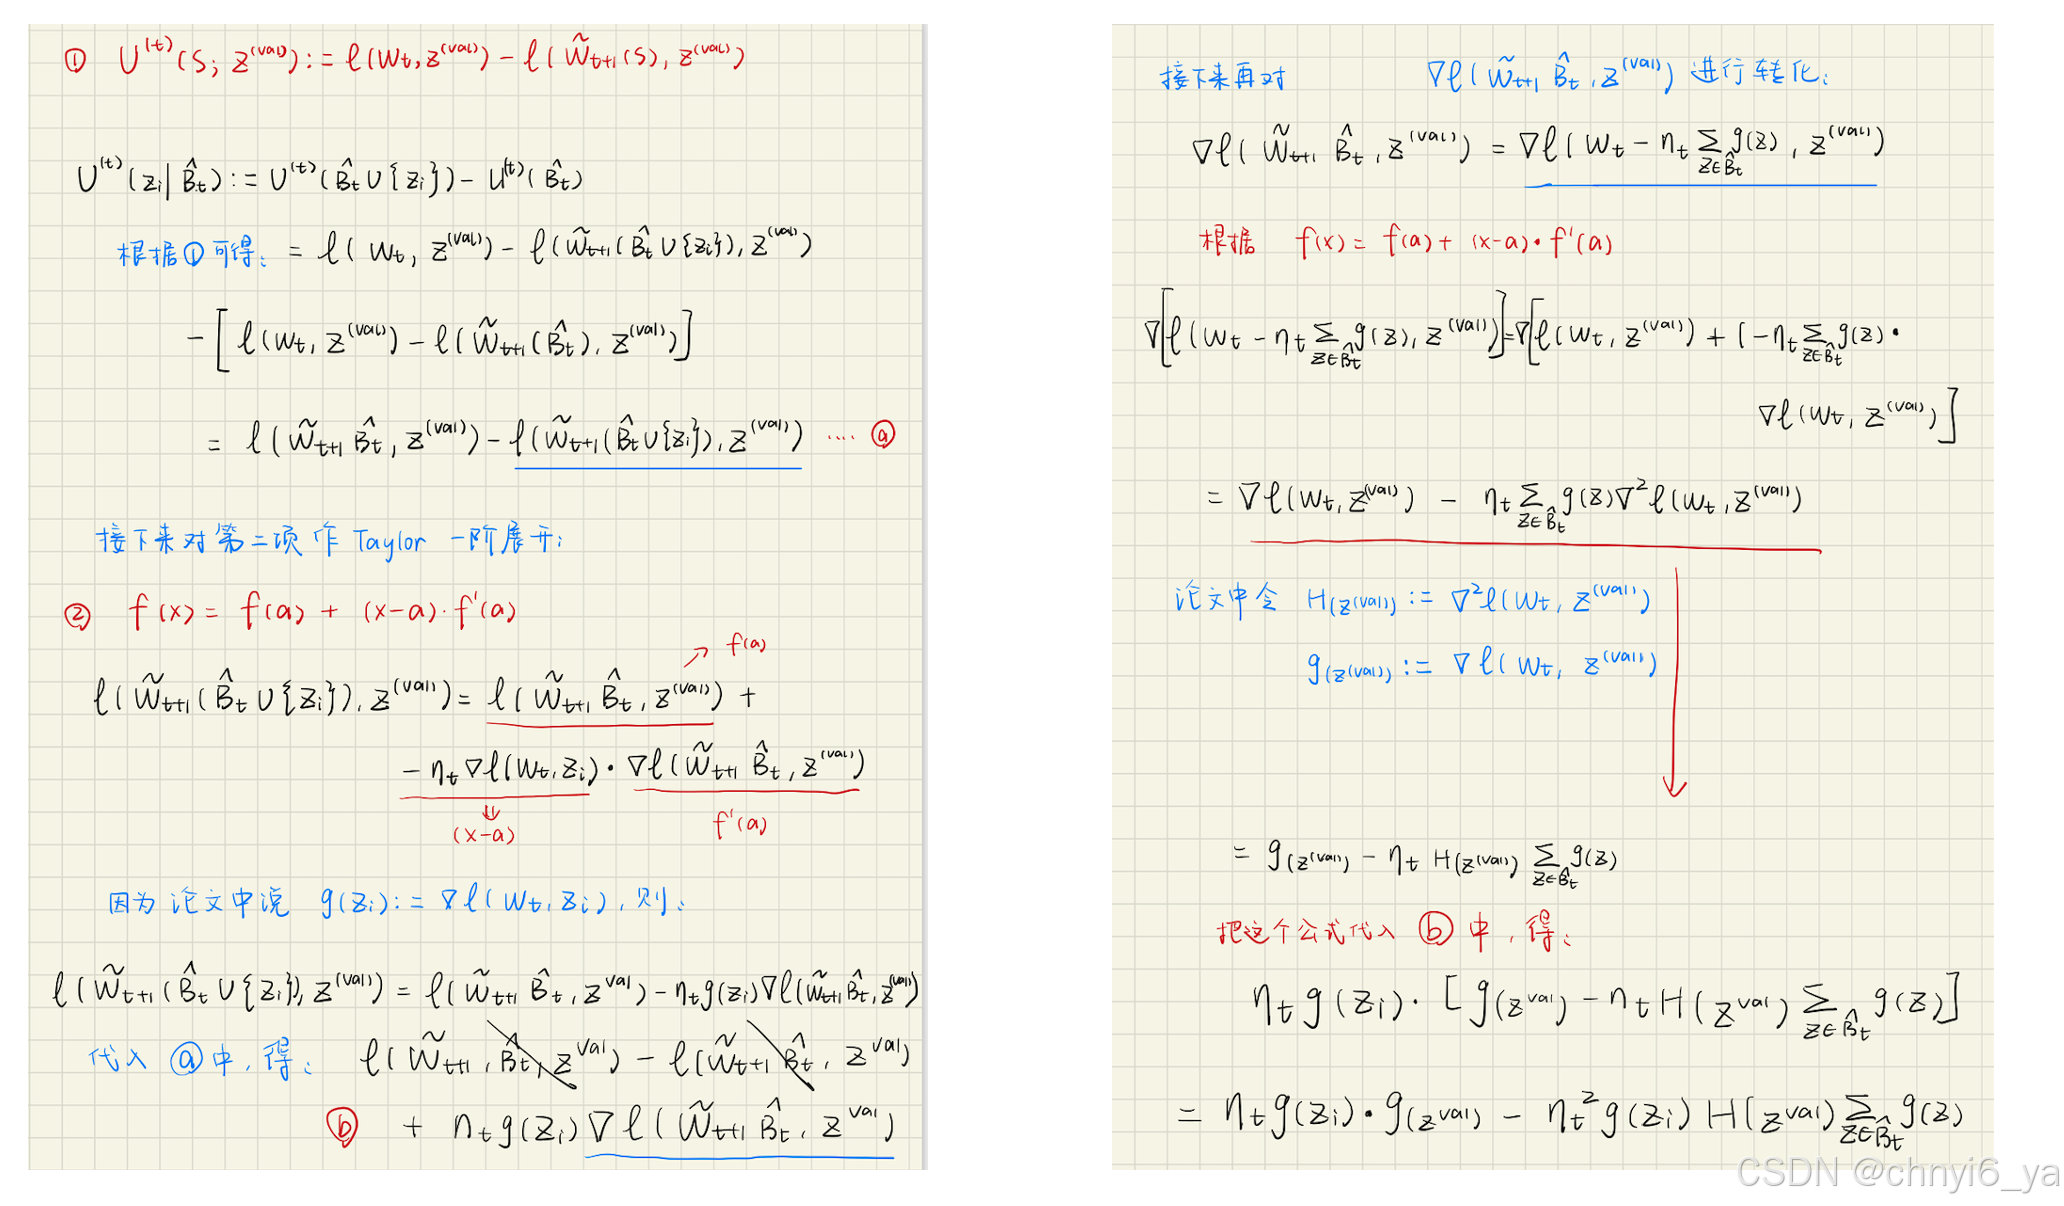 ① U^(t)(S; z^(val)) := ℓ(w_t, z^(val)) − ℓ(w̃_{t+1}(S), z^(val))
U^(t)(z_i | B̂_t) := U^(t)(B̂_t ∪ {z_i}) − U^(t)(B̂_t)
根据①可得: = ℓ(w_t, z^(val)) − ℓ(w̃_{t+1}(B̂_t ∪ {z_i}), z^(val))
− [ ℓ(w_t, z^(val)) − ℓ(w̃_{t+1}(B̂_t), z^(val)) ]
= ℓ(w̃_{t+1} B̂_t, z^(val)) − ℓ(w̃_{t+1}(B̂_t ∪ {z_i}), z^(val)) .... ⓐ
接下来对第二项作 Taylor 一阶展开:
② f(x) = f(a) + (x−a)·f'(a)
↗ f(a)
ℓ(w̃_{t+1}(B̂_t ∪ {z_i}), z^(val)) = ℓ(w̃_{t+1} B̂_t, z^(val)) +
− η_t ∇ℓ(w_t, z_i) · ∇ℓ(w̃_{t+1} B̂_t, z^(val))
↓
(x−a) f'(a)
因为论文中说 g(z_i) := ∇ℓ(w_t, z_i), 则:
ℓ(w̃_{t+1}(B̂_t ∪ {z_i}), z^(val)) = ℓ(w̃_{t+1} B̂_t, z^val) − η_t g(z_i)∇ℓ(w̃_{t+1} B̂_t, z^(val))
代入ⓐ中, 得: ℓ(w̃_{t+1}, B̂_t, z^val) − ℓ(w̃_{t+1} B̂_t, z^val)
ⓑ + η_t g(z_i) ∇ℓ(w̃_{t+1} B̂_t, z^val)
接下来再对 ∇ℓ(w̃_{t+1} B̂_t, z^(val)) 进行转化:
∇ℓ(w̃_{t+1} B̂_t, z^(val)) = ∇ℓ(w_t − η_t ∑_{z∈B̂_t} g(z), z^(val))
根据 f(x) = f(a) + (x−a)·f'(a)
∇[ℓ(w_t − η_t ∑_{z∈B̂_t} g(z), z^(val))] = ∇[ℓ(w_t, z^(val)) + (−η_t ∑_{z∈B̂_t} g(z) ·
∇ℓ(w_t, z^(val)]
= ∇ℓ(w_t, z^(val)) − η_t ∑_{z∈B̂_t} g(z)∇²ℓ(w_t, z^(val))
论文中令 H(z^(val)) := ∇²ℓ(w_t, z^(val))
g(z^(val)) := ∇ℓ(w_t, z^(val))
= g(z^(val)) − η_t H(z^(val)) ∑_{z∈B̂_t} g(z)
把这个公式代入 ⓑ 中, 得:
η_t g(z_i) · [g(z^val) − η_t H(z^val) ∑_{z∈B̂_t} g(z)]
= η_t g(z_i) · g(z^val) − η_t² g(z_i) H(z^val) ∑_{z∈B̂_t} g(z)
CSDN @chnyi6_ya